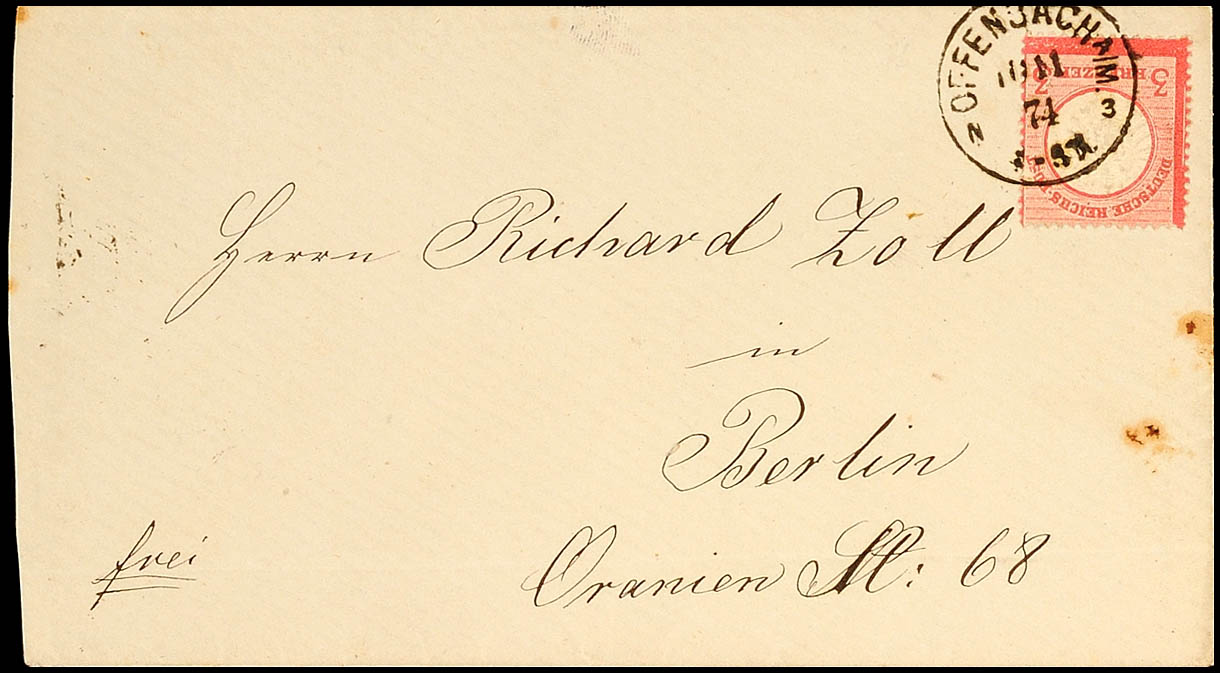 OFFENBACH A/M.
74
3
N
3 KREUZER 3
DEUTSCHE REICHS-
Herrn Richard Zoll
in
Berlin
Oranien St: 68
frei